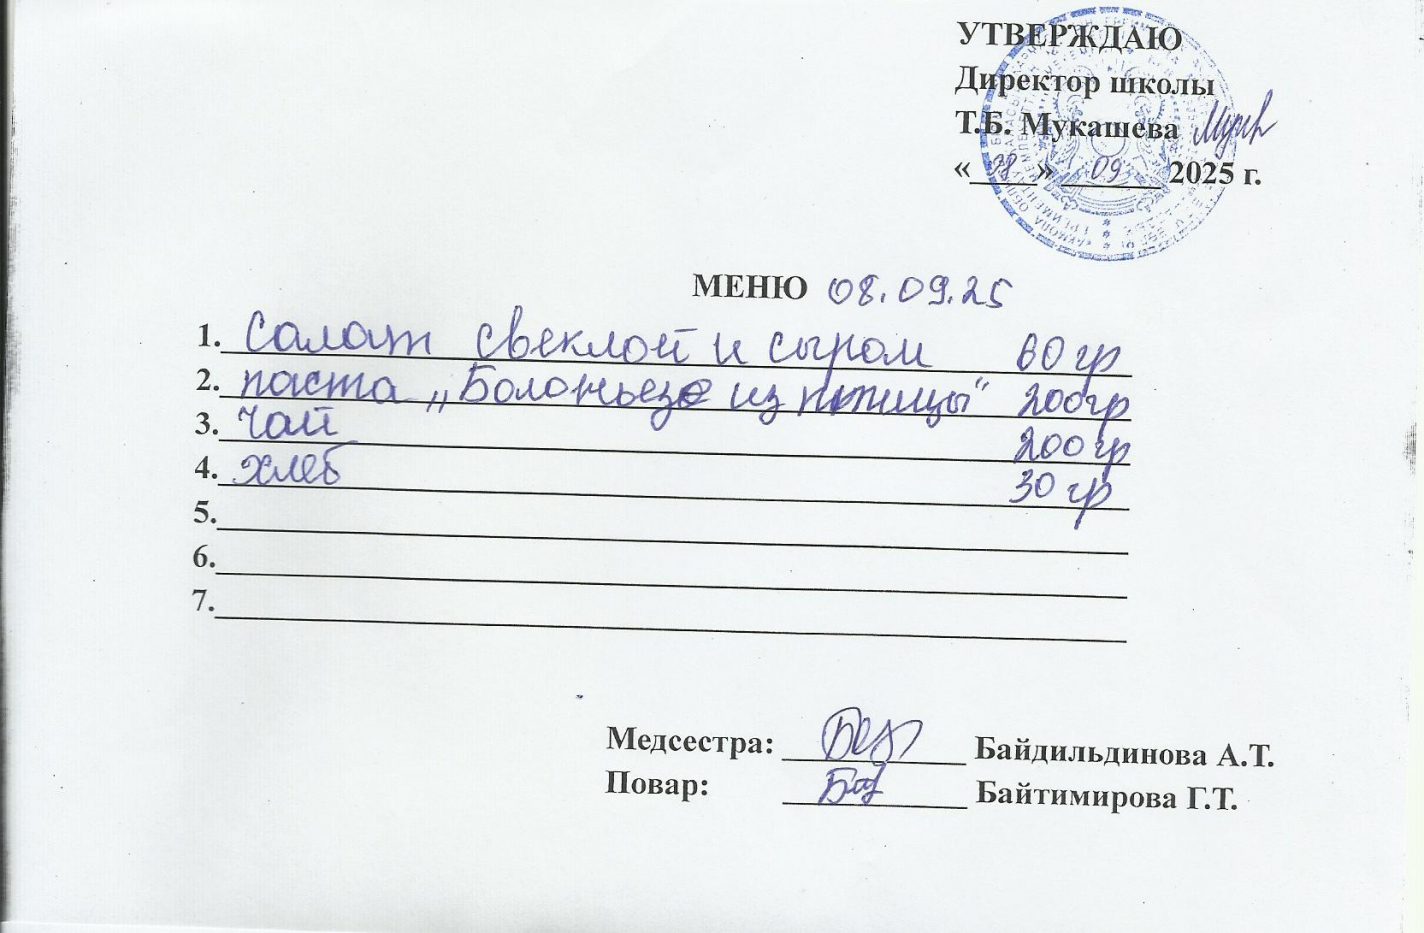 УТВЕРЖДАЮ
Директор школы
Т.Б. Мукашева
«08» 09 2025 г.
МЕНЮ 08.09.25
1. Салат свеклой и сыром 60 гр
2. паста „Болоньезе из птицы" 200гр
3. Чай 200 гр
4. хлеб 30 гр
5.
6.
7.
Медсестра: Байдильдинова А.Т.
Повар: Байтимирова Г.Т.